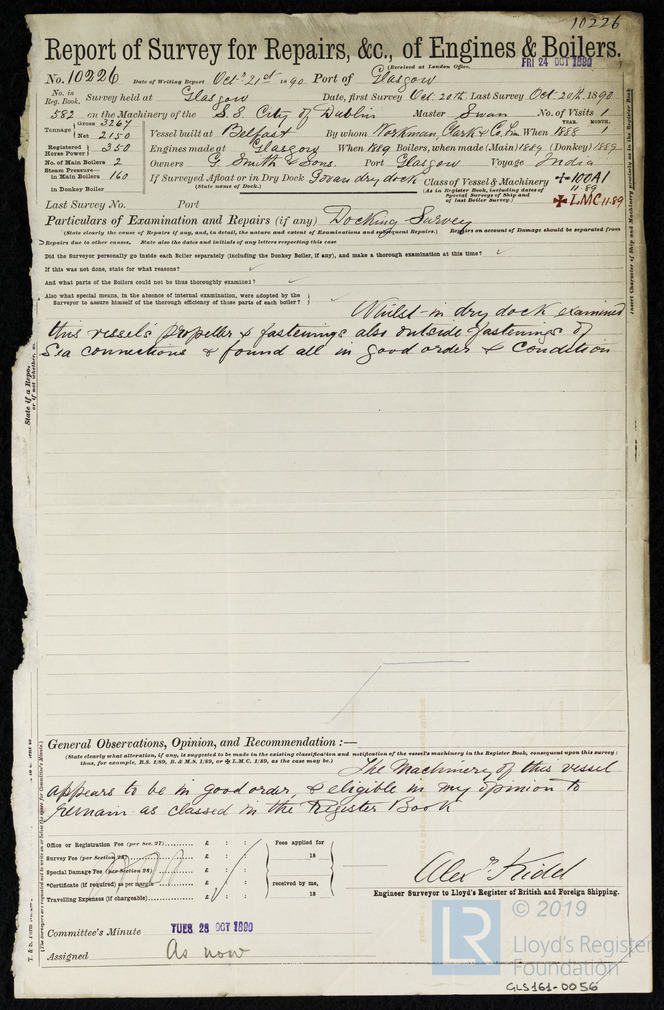 10226
Report of Survey for Repairs, &c., of Engines & Boilers.
(Received at London Office. FRI 24 OCT 1890
No. 10226 Date of Writing Report Oct. 21st 1890 Port of Glasgow
No. in Reg. Book. Survey held at Glasgow Date, first Survey Oct. 20th. Last Survey Oct. 20th. 1890
582 on the Machinery of the S.S. City of Dublin Master Swan No. of Visits 1
YEAR. MONTH.
Tonnage Gross 3267 Net 2150 Vessel built at Belfast By whom Workman, Clark & Co. Lim When 1888 1
Registered Horse Power 350 Engines made at Glasgow When 1889 Boilers, when made (Main) 1889 (Donkey) 1889
No. of Main Boilers 2 Owners G. Smith & Sons. Port Glasgow Voyage India
Steam Pressure— in Main Boilers 160 If Surveyed Afloat or in Dry Dock Govan dry dock Class of Vessel & Machinery +100A1
(State name of Dock.) (As in Register Book, including dates of Special Surveys of Ship and of last Boiler Survey.) 11.89
in Donkey Boiler
+LMC 11.89
Last Survey No. Port
Particulars of Examination and Repairs (if any) Docking Survey
(State clearly the cause of Repairs if any, and, in detail, the nature and extent of Examinations and subsequent Repairs.) Repairs on account of Damage should be separated from
Repairs due to other causes. State also the dates and initials of any letters respecting this case
Did the Surveyor personally go inside each Boiler separately (including the Donkey Boiler, if any), and make a thorough examination at this time?
If this was not done, state for what reasons?
And what parts of the Boilers could not be thus thoroughly examined?
Also what special means, in the absence of internal examination, were adopted by the
Surveyor to assure himself of the thorough efficiency of those parts of each boiler?
Whilst in dry dock examined
this vessel's propeller & fastenings also outside fastenings of
Sea connections & found all in good order & condition
General Observations, Opinion, and Recommendation :—
(State clearly what alteration, if any, is suggested to be made in the existing classification and notification of the vessel's machinery in the Register Book, consequent upon this survey;
thus, for example, B.S. 1/89, B. & M.S. 1/89, or + L.M.C. 1/89, as the case may be.)
The Machinery of this vessel
appears to be in good order, & eligible in my opinion to
remain as classed in the Register Book
Office or Registration Fee (per Sec. 27) £ : : Fees applied for
Survey Fee (per Section 28) £ : : 18
Special Damage Fee (per Section 28) £ : :
*Certificate (if required) as per margin £ : : received by me,
Travelling Expenses (if chargeable) £ : : 18
Alexr. Kidd
Engineer Surveyor to Lloyd's Register of British and Foreign Shipping.
Committee's Minute TUES 28 OCT 1890
Assigned As now
LR © 2019
Lloyd's Register
Foundation
GLS161-0056